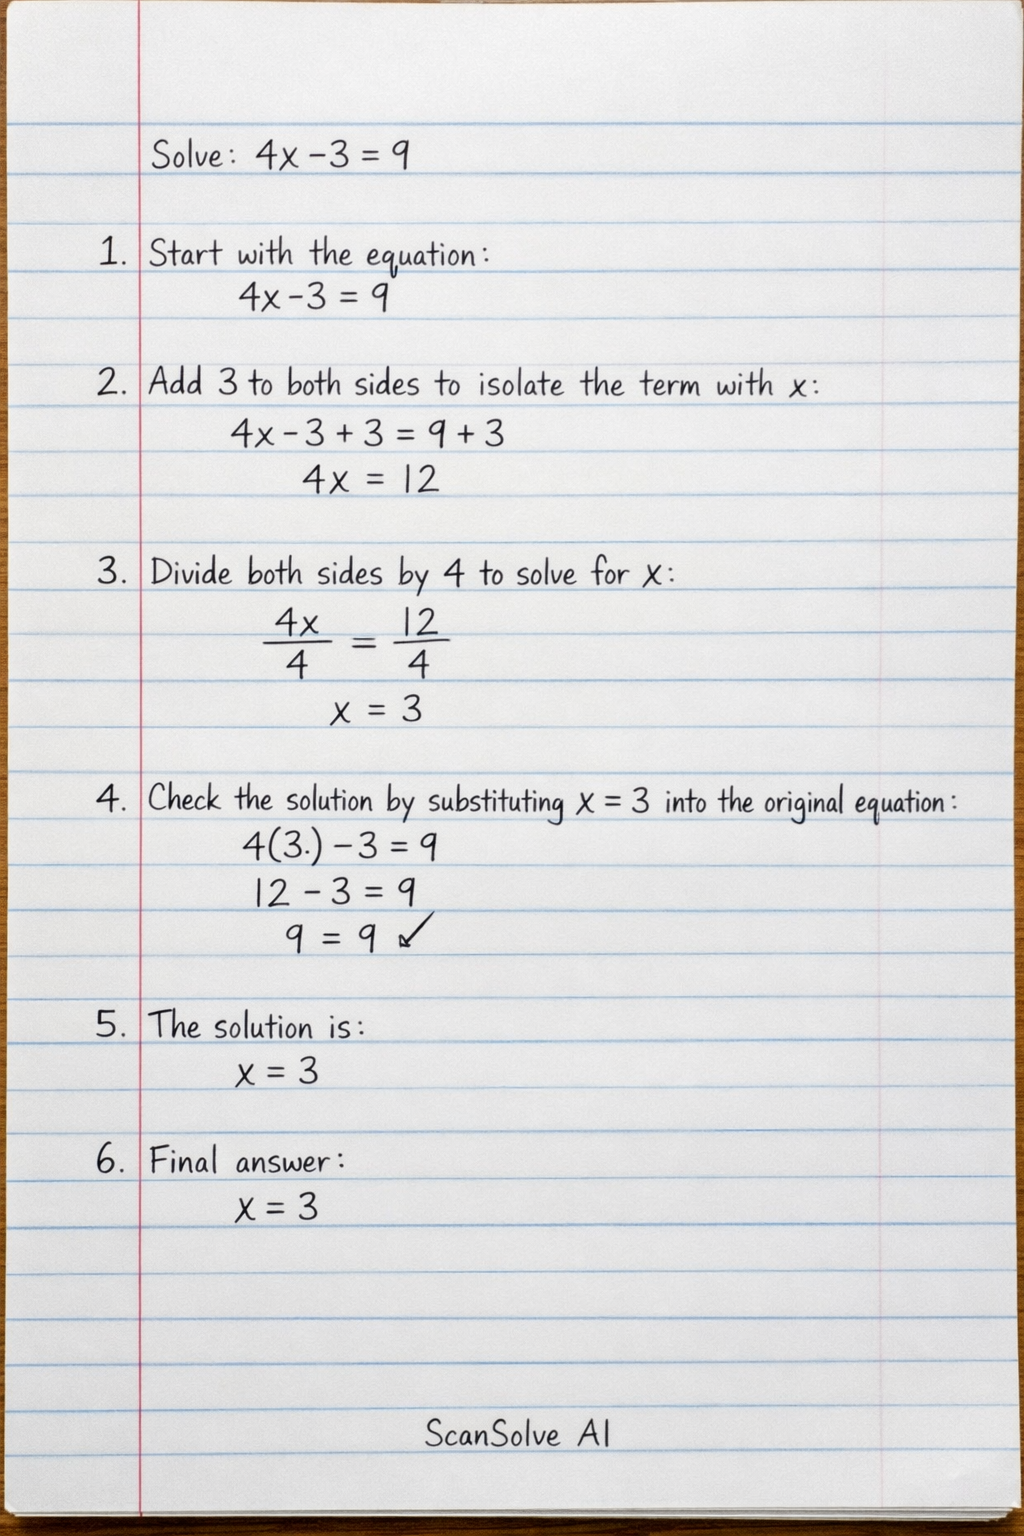 Solve: 4x - 3 = 9
1. Start with the equation:
4x - 3 = 9
2. Add 3 to both sides to isolate the term with x:
4x - 3 + 3 = 9 + 3
4x = 12
3. Divide both sides by 4 to solve for x:
4x/4 = 12/4
x = 3
4. Check the solution by substituting x = 3 into the original equation:
4(3.) - 3 = 9
12 - 3 = 9
9 = 9 ✓
5. The solution is:
x = 3
6. Final answer:
x = 3
ScanSolve AI